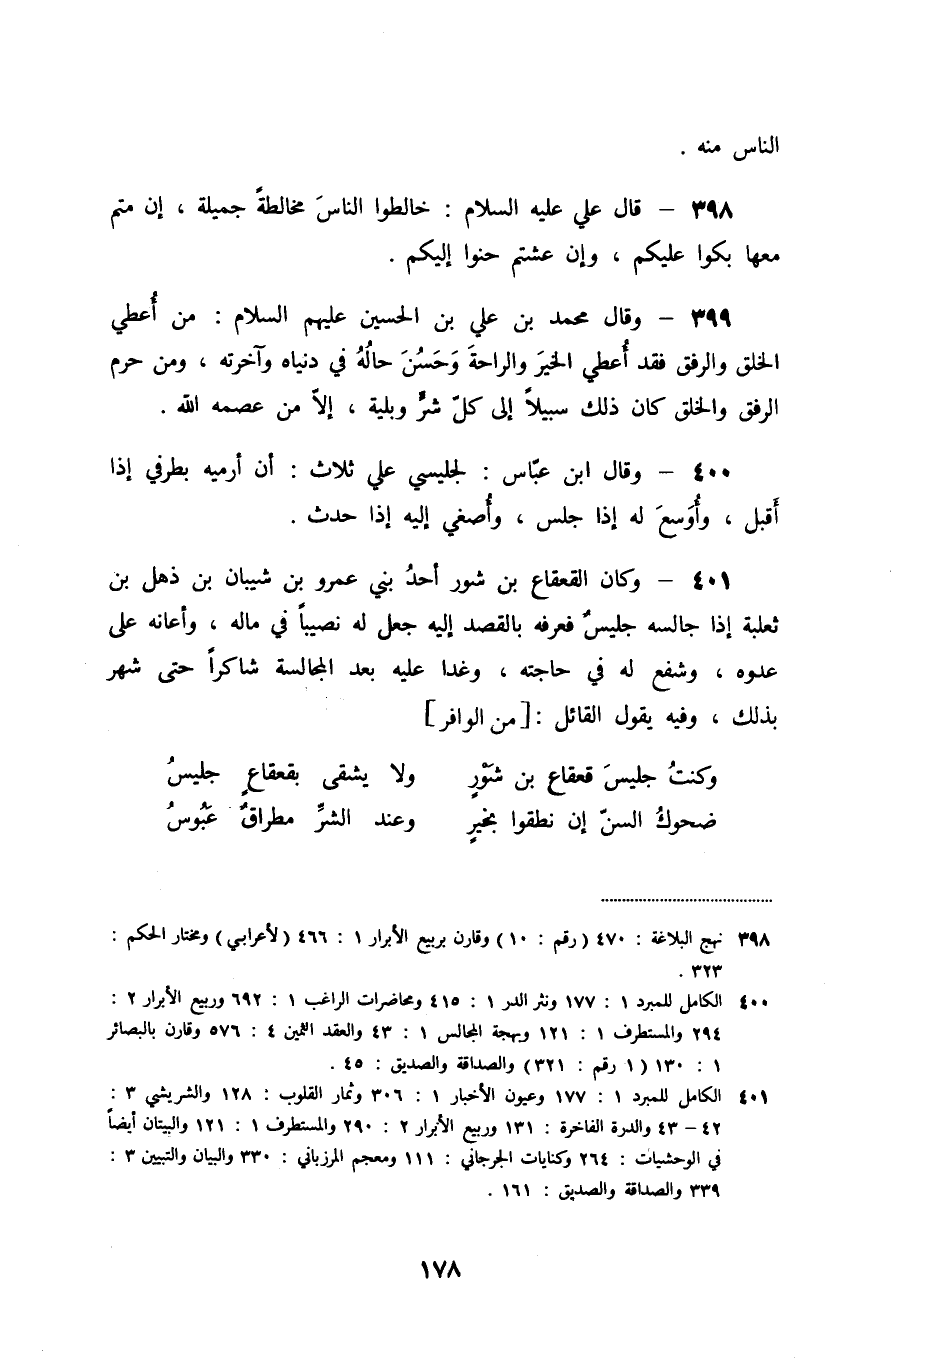 الناس منه .
٣٩٨ – قال علي عليه السلام : خالطوا الناسَ مخالطةً جميلة ، إن متم
معها بكوا عليكم ، وإن عشتم حنوا إليكم .
٣٩٩ – وقال محمد بن علي بن الحسين عليهم السلام : من أُعطي
الخلق والرفق فقد أُعطي الخيَر والراحةَ وَحَسُنَ حالُهُ في دنياه وآخرته ، ومن حرم
الرفق والخلق كان ذلك سبيلاً إلى كلّ شرٍّ وبلية ، إلاّ من عصمه الله .
٤٠٠ – وقال ابن عبّاس : لجليسي علي ثلاث : أن أرميه بطرفي إذا
أَقبل ، وأُوَسعَ له إذا جلس ، وأُصغي إليه إذا حدث .
٤٠١ – وكان القعقاع بن شور أحدُ بني عمرو بن شيبان بن ذهل بن
ثعلبة إذا جالسه جليسٌ فعرفه بالقصد إليه جعل له نصيباً في ماله ، وأعانه على
عدوه ، وشفع له في حاجته ، وغدا عليه بعد المجالسة شاكراً حتى شهر
بذلك ، وفيه يقول القائل : [من الوافر]
وكنتُ جليسَ قعقاع بن شَوْرٍ ولا يشقى بقعقاعٍ جليسُ
ضحوكُ السنّ إن نطقوا بخيرٍ وعند الشرِّ مطراقٌ عَبُوسُ
٣٩٨ نهج البلاغة : ٤٧٠ (رقم : ١٠) وقارن بربيع الأبرار ١ : ٤٦٦ (لأعرابي) ومختار الحكم :
٣٢٣ .
٤٠٠ الكامل للمبرد ١ : ١٧٧ ونثر الدر ١ : ٤١٥ ومحاضرات الراغب ١ : ٦٩٢ وربيع الأبرار ٢ :
٢٩٤ والمستطرف ١ : ١٢١ وبهجة المجالس ١ : ٤٣ والعقد الثمين ٤ : ٥٧٦ وقارن بالبصائر
١ : ١٣٠ (١ رقم : ٣٢١) والصداقة والصديق : ٤٥ .
٤٠١ الكامل للمبرد ١ : ١٧٧ وعيون الأخبار ١ : ٣٠٦ وثمار القلوب : ١٢٨ والشريشي ٣ :
٤٢ – ٤٣ والدرة الفاخرة : ١٣١ وربيع الأبرار ٢ : ٢٩٠ والمستطرف ١ : ١٢١ والبيتان أيضاً
في الوحشيات : ٢٦٤ وكنايات الجرجاني : ١١١ ومعجم المرزباني : ٣٣٠ والبيان والتبيين ٣ :
٣٣٩ والصداقة والصديق : ١٦١ .
١٧٨